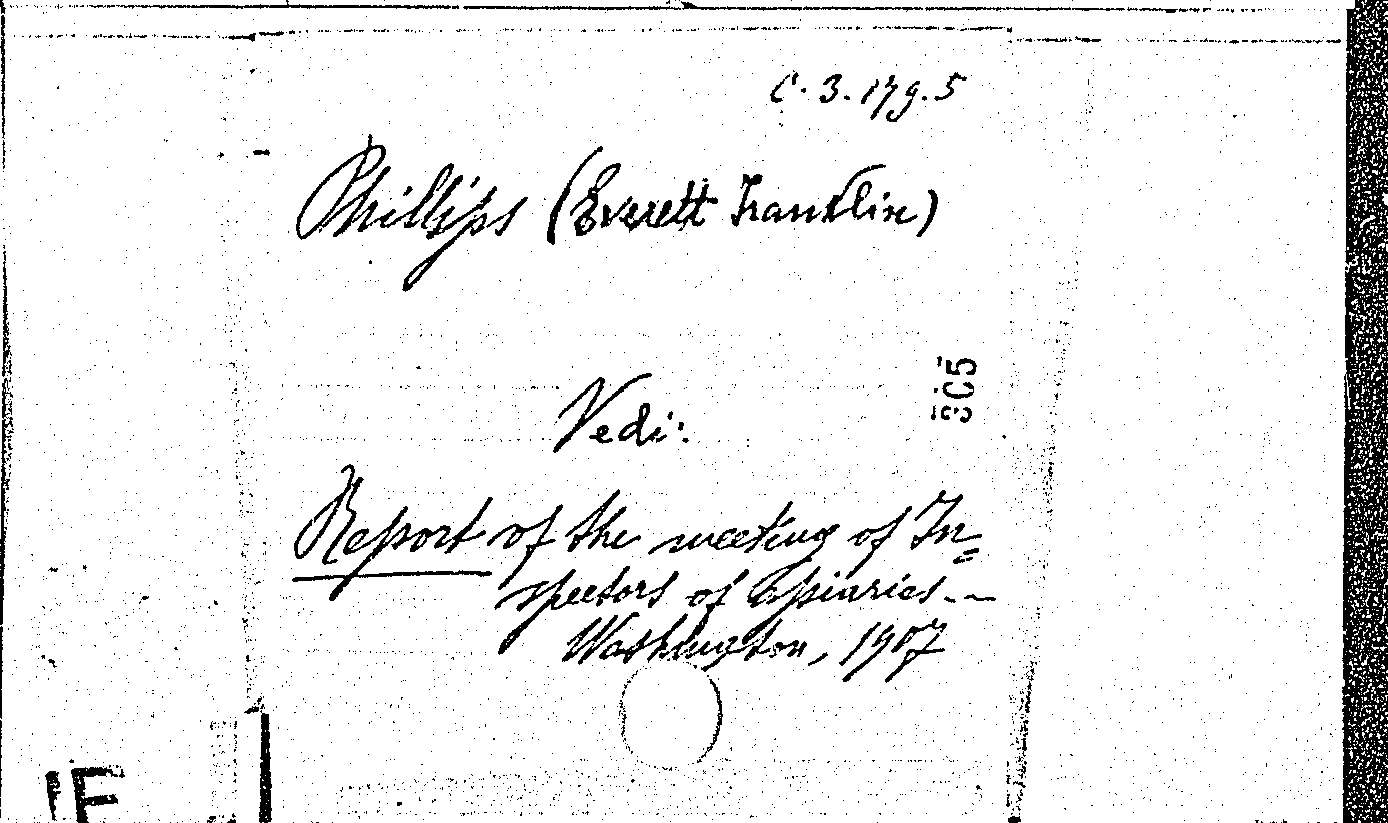 C. 3. 179. 5
Phillips (Everett Franklin)
305
Vedi:
Report of the meeting of In=
spectors of Apiaries.--
Washington, 1907